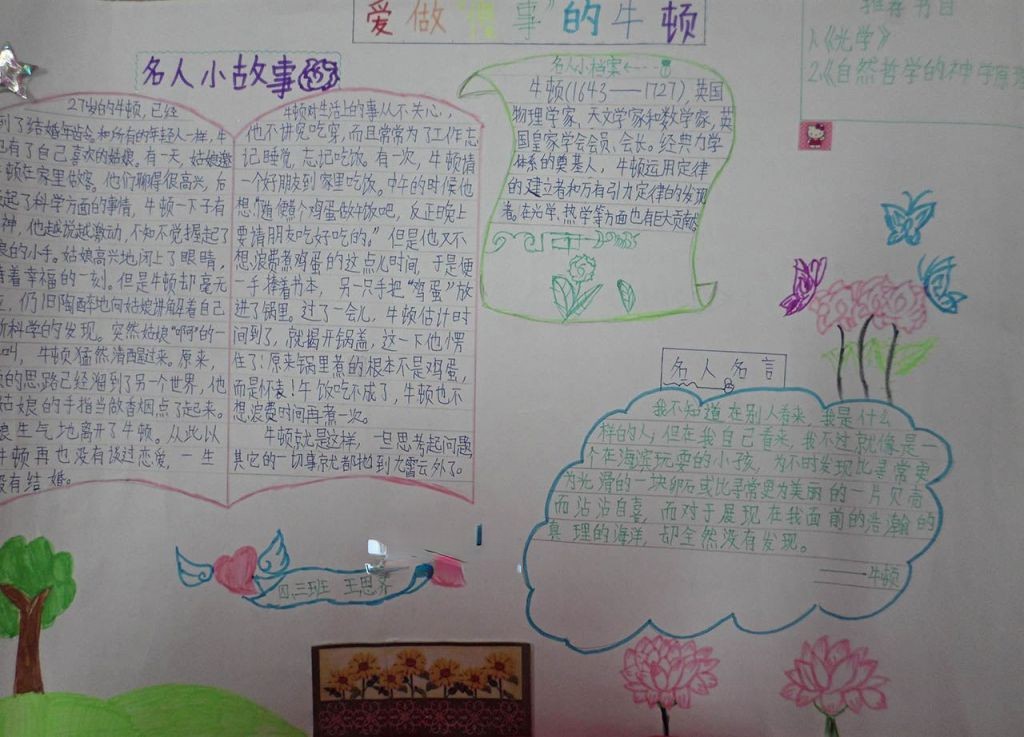 爱做"傻事"的牛顿
推荐书目
1.《光学》
2.《自然哲学的神学原理
名人小故事
27岁的牛顿,已经
到了结婚年龄。和所有的年轻人一样,牛
也有了自己喜欢的姑娘。有一天,姑娘邀
牛顿在家里做客。他们聊得很高兴,后
起了科学方面的事情,牛顿一下子有
神,他越说越激动,不知不觉握起了
娘的小手。姑娘高兴地闭上了眼睛,
着幸福的一刻。但是牛顿却毫无
仍旧陶醉地向姑娘讲解着自己
科学的发现。突然姑娘"啊"的一
叫,牛顿猛然清醒过来。原来,
的思路已经溜到了另一个世界,他
姑娘的手指当做香烟点了起来。
娘生气地离开了牛顿。从此以
牛顿再也没有谈过恋爱,一生
没有结婚。
牛顿对生活上的事从不关心,
他不讲究吃穿,而且常常为了工作忘
记睡觉,忘记吃饭。有一次,牛顿请
一个好朋友到家里吃饭。中午的时候他
想"随便煮个鸡蛋做午饭吧,反正晚上
要请朋友吃好吃的。"但是他又不
想浪费煮鸡蛋的这点儿时间,于是便
一手捧着书本,另一只手把"鸡蛋"放
进了锅里。过了一会儿,牛顿估计时
间到了,就揭开锅盖,这一下他愣
住了:原来锅里煮的根本不是鸡蛋,
而是怀表!午饭吃不成了,牛顿也不
想浪费时间再煮一次。
牛顿就是这样,一旦思考起问题
其它的一切事就都抛到九霄云外了。
名人小档案
牛顿(1643——1727),英国
物理学家、天文学家和数学家,英
国皇家学会会员、会长。经典力学
体系的奠基人,牛顿运用定律
的建立者和万有引力定律的发现
者。在光学、热学等方面也有巨大贡献
名人名言
我不知道在别人看来,我是什么
样的人;但在我自己看来,我不过就像是一
个在海滨玩耍的小孩,为不时发现比寻常更
为光滑的一块卵石或比寻常更为美丽的一片贝壳
而沾沾自喜,而对于展现在我面前的浩瀚的
真理的海洋,却全然没有发现。
——牛顿
四.三班 王思